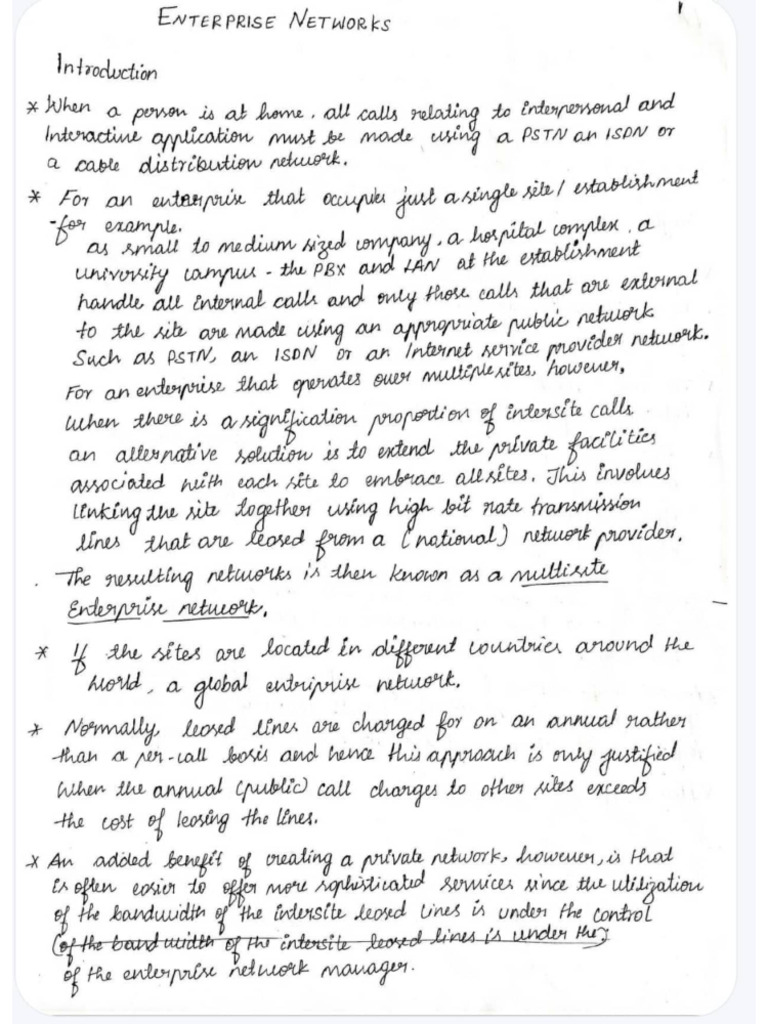 ENTERPRISE NETWORKS
1
Introduction
* When a person is at home, all calls relating to interpersonal and
Interactive application must be made using a PSTN an ISDN or
a cable distribution network.
* For an enterprise that occupies just a single site/ establishment
-for example.
as small to medium sized company, a hospital complex, a
university campus - the PBX and LAN at the establishment
handle all internal calls and only those calls that are external
to the site are made using an appropriate public network
Such as PSTN, an ISDN or an Internet service provider network.
For an enterprise that operates over multiple sites, however,
When there is a signification proportion of intersite calls
an alternative solution is to extend the private facilities
associated with each site to embrace all sites. This involves
linking the site together using high bit rate transmission
lines that are leased from a (national) network provider.
. The resulting networks is then known as a multisite
Enterprise network.
* If the sites are located in different countries around the
world, a global entriprise network.
* Normally, leased lines are charged for on an annual rather
than a per-call basis and hence this approach is only justified
When the annual (public) call charges to other sites exceeds
the cost of leasing the lines.
* An added benefit of creating a private network, however, is that
is often easier to offer more sophisticated services since the utilization
of the bandwidth of the intersite leased lines is under the control
(of the band width of the intersite leased lines is under the)
of the enterprise network manager.